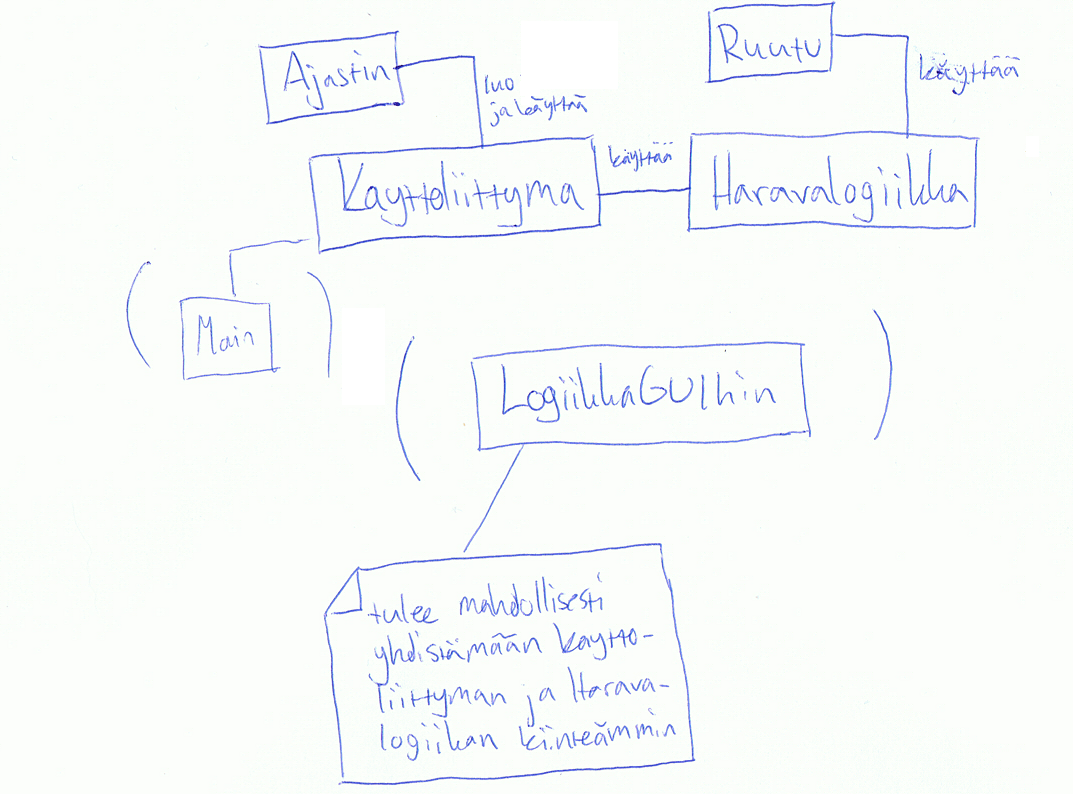 Ajastin
Ruutu
luo
ja käyttää
käyttää
käyttää
Kayttoliittyma
Haravalogiikka
Main
LogiikkaGUIhin
tulee mahdollisesti
yhdistämään kaytto-
liittyman ja Harava-
logiikan kiinteämmin